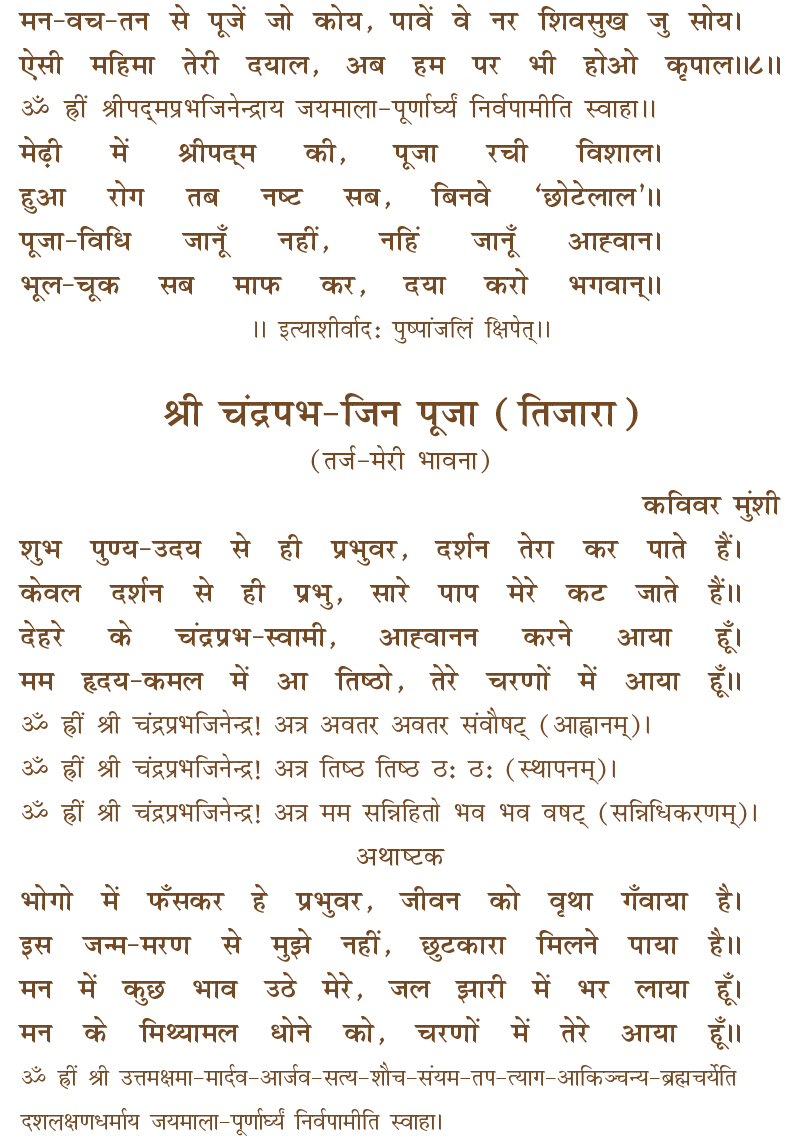 मन-वच-तन से पूजें जो कोय, पावें वे नर शिवसुख जु सोय।
ऐसी महिमा तेरी दयाल, अब हम पर भी होओ कृपाल॥८॥
ॐ ह्रीं श्रीपद्‌मप्रभजिनेन्द्राय जयमाला-पूर्णार्घ्यं निर्वपामीति स्वाहा॥
मेढ़ी में श्रीपद्‌म की, पूजा रची विशाल।
हुआ रोग तब नष्ट सब, बिनवे ‘छोटेलाल’॥
पूजा-विधि जानूँ नहीं, नहिं जानूँ आह्वान।
भूल-चूक सब माफ कर, दया करो भगवान्॥
॥ इत्याशीर्वाद: पुष्पांजलिं क्षिपेत्॥
श्री चंद्रपभ-जिन पूजा (तिजारा)
(तर्ज-मेरी भावना)
कविवर मुंशी
शुभ पुण्य-उदय से ही प्रभुवर, दर्शन तेरा कर पाते हैं।
केवल दर्शन से ही प्रभु, सारे पाप मेरे कट जाते हैं॥
देहरे के चंद्रप्रभ-स्वामी, आह्वानन करने आया हूँ।
मम हृदय-कमल में आ तिष्ठो, तेरे चरणों में आया हूँ॥
ॐ ह्रीं श्री चंद्रप्रभजिनेन्द्र! अत्र अवतर अवतर संवौषट् (आह्वानम्)।
ॐ ह्रीं श्री चंद्रप्रभजिनेन्द्र! अत्र तिष्ठ तिष्ठ ठ: ठ: (स्थापनम्)।
ॐ ह्रीं श्री चंद्रप्रभजिनेन्द्र! अत्र मम सन्निहितो भव भव वषट् (सन्निधिकरणम्)।
अथाष्टक
भोगो में फँसकर हे प्रभुवर, जीवन को वृथा गँवाया है।
इस जन्म-मरण से मुझे नहीं, छुटकारा मिलने पाया है॥
मन में कुछ भाव उठे मेरे, जल झारी में भर लाया हूँ।
मन के मिथ्यामल धोने को, चरणों में तेरे आया हूँ॥
ॐ ह्रीं श्री उत्तमक्षमा-मार्दव-आर्जव-सत्य-शौच-संयम-तप-त्याग-आकिञ्चन्य-ब्रह्मचर्येति
दशलक्षणधर्माय जयमाला-पूर्णार्घ्यं निर्वपामीति स्वाहा।